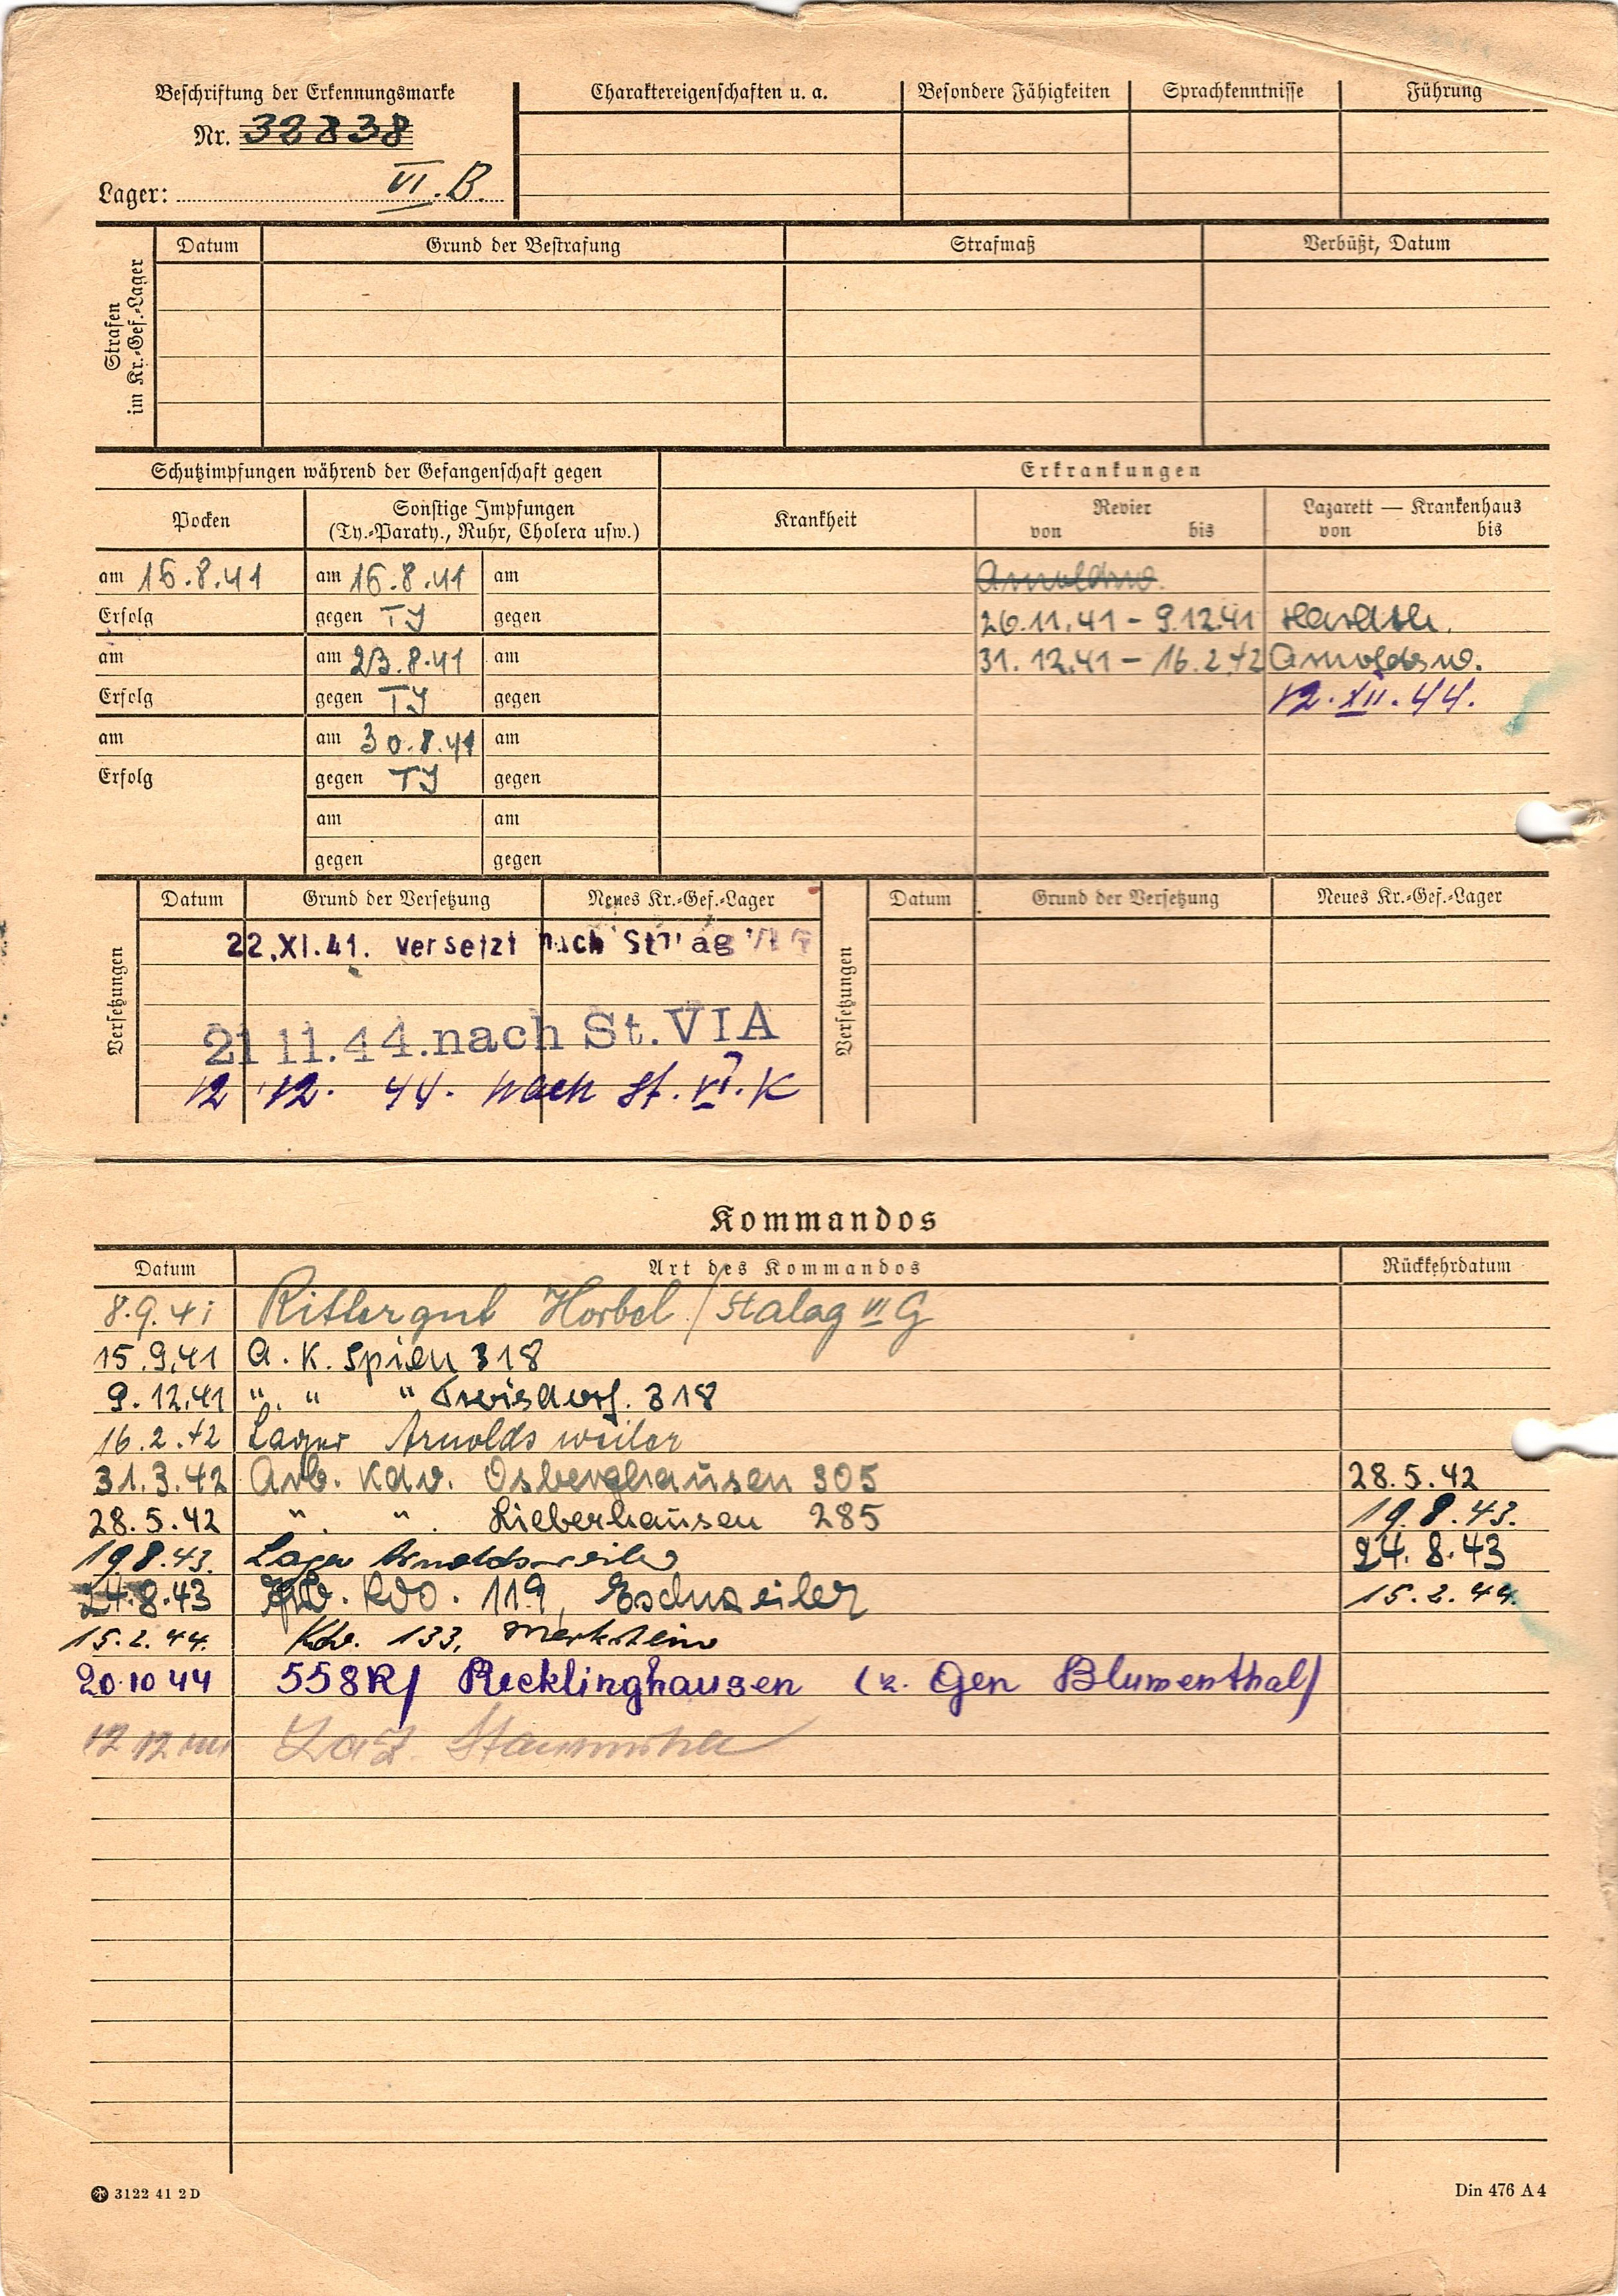 Beschriftung der Erkennungsmarke
Nr. 32838
Lager: VI.B.
Charaktereigenschaften u. a.
Besondere Fähigkeiten
Sprachkenntnisse
Führung
Strafen
im Kr.-Gef.-Lager
Datum
Grund der Bestrafung
Strafmaß
Verbüßt, Datum
Schutzimpfungen während der Gefangenschaft gegen
Erkrankungen
Pocken
Sonstige Impfungen
(Ty.-Paraty., Ruhr, Cholera usw.)
Krankheit
Revier
von bis
Lazarett — Krankenhaus
von bis
am 16.8.41 am 16.8.41 am
Arnoldsw.
Erfolg gegen TY gegen
26.11.41 - 9.12.41
am am 23.8.41 am
31.12.41 - 16.2.42 Arnoldsw.
Erfolg gegen TY gegen
12.XII.44.
am am 30.8.41 am
Erfolg gegen TY gegen
am am
gegen gegen
Versetzungen
Datum Grund der Versetzung Neues Kr.-Gef.-Lager
22.XI.41. versetzt nach Stalag VI G
21 11.44.nach St.VIA
12 12. 44. nach St. VI.K
Versetzungen
Datum Grund der Versetzung Neues Kr.-Gef.-Lager
Kommandos
Datum Art des Kommandos Rückkehrdatum
8.9.41 Rittergut Horbel / Stalag VI G
15.9.41 A. K. Spien 318
9.12.41 " " " Troisdorf. 318
16.2.42 Lager Arnoldsweiler
31.3.42 Arb. Kdo. Osberghausen 305 28.5.42
28.5.42 ". ". Lieberhausen 285 19.8.43.
19.8.43. Lager Arnoldsweiler 24.8.43
24.8.43 Arb. Kdo. 119, Eschweiler 15.2.44.
15.2.44. Kdo. 133, Merkstein
20.10 44 558R/ Recklinghausen (z. Gen Blumenthal)
12 12 44 Laz. Staumühle
3122 41 2 D
Din 476 A 4